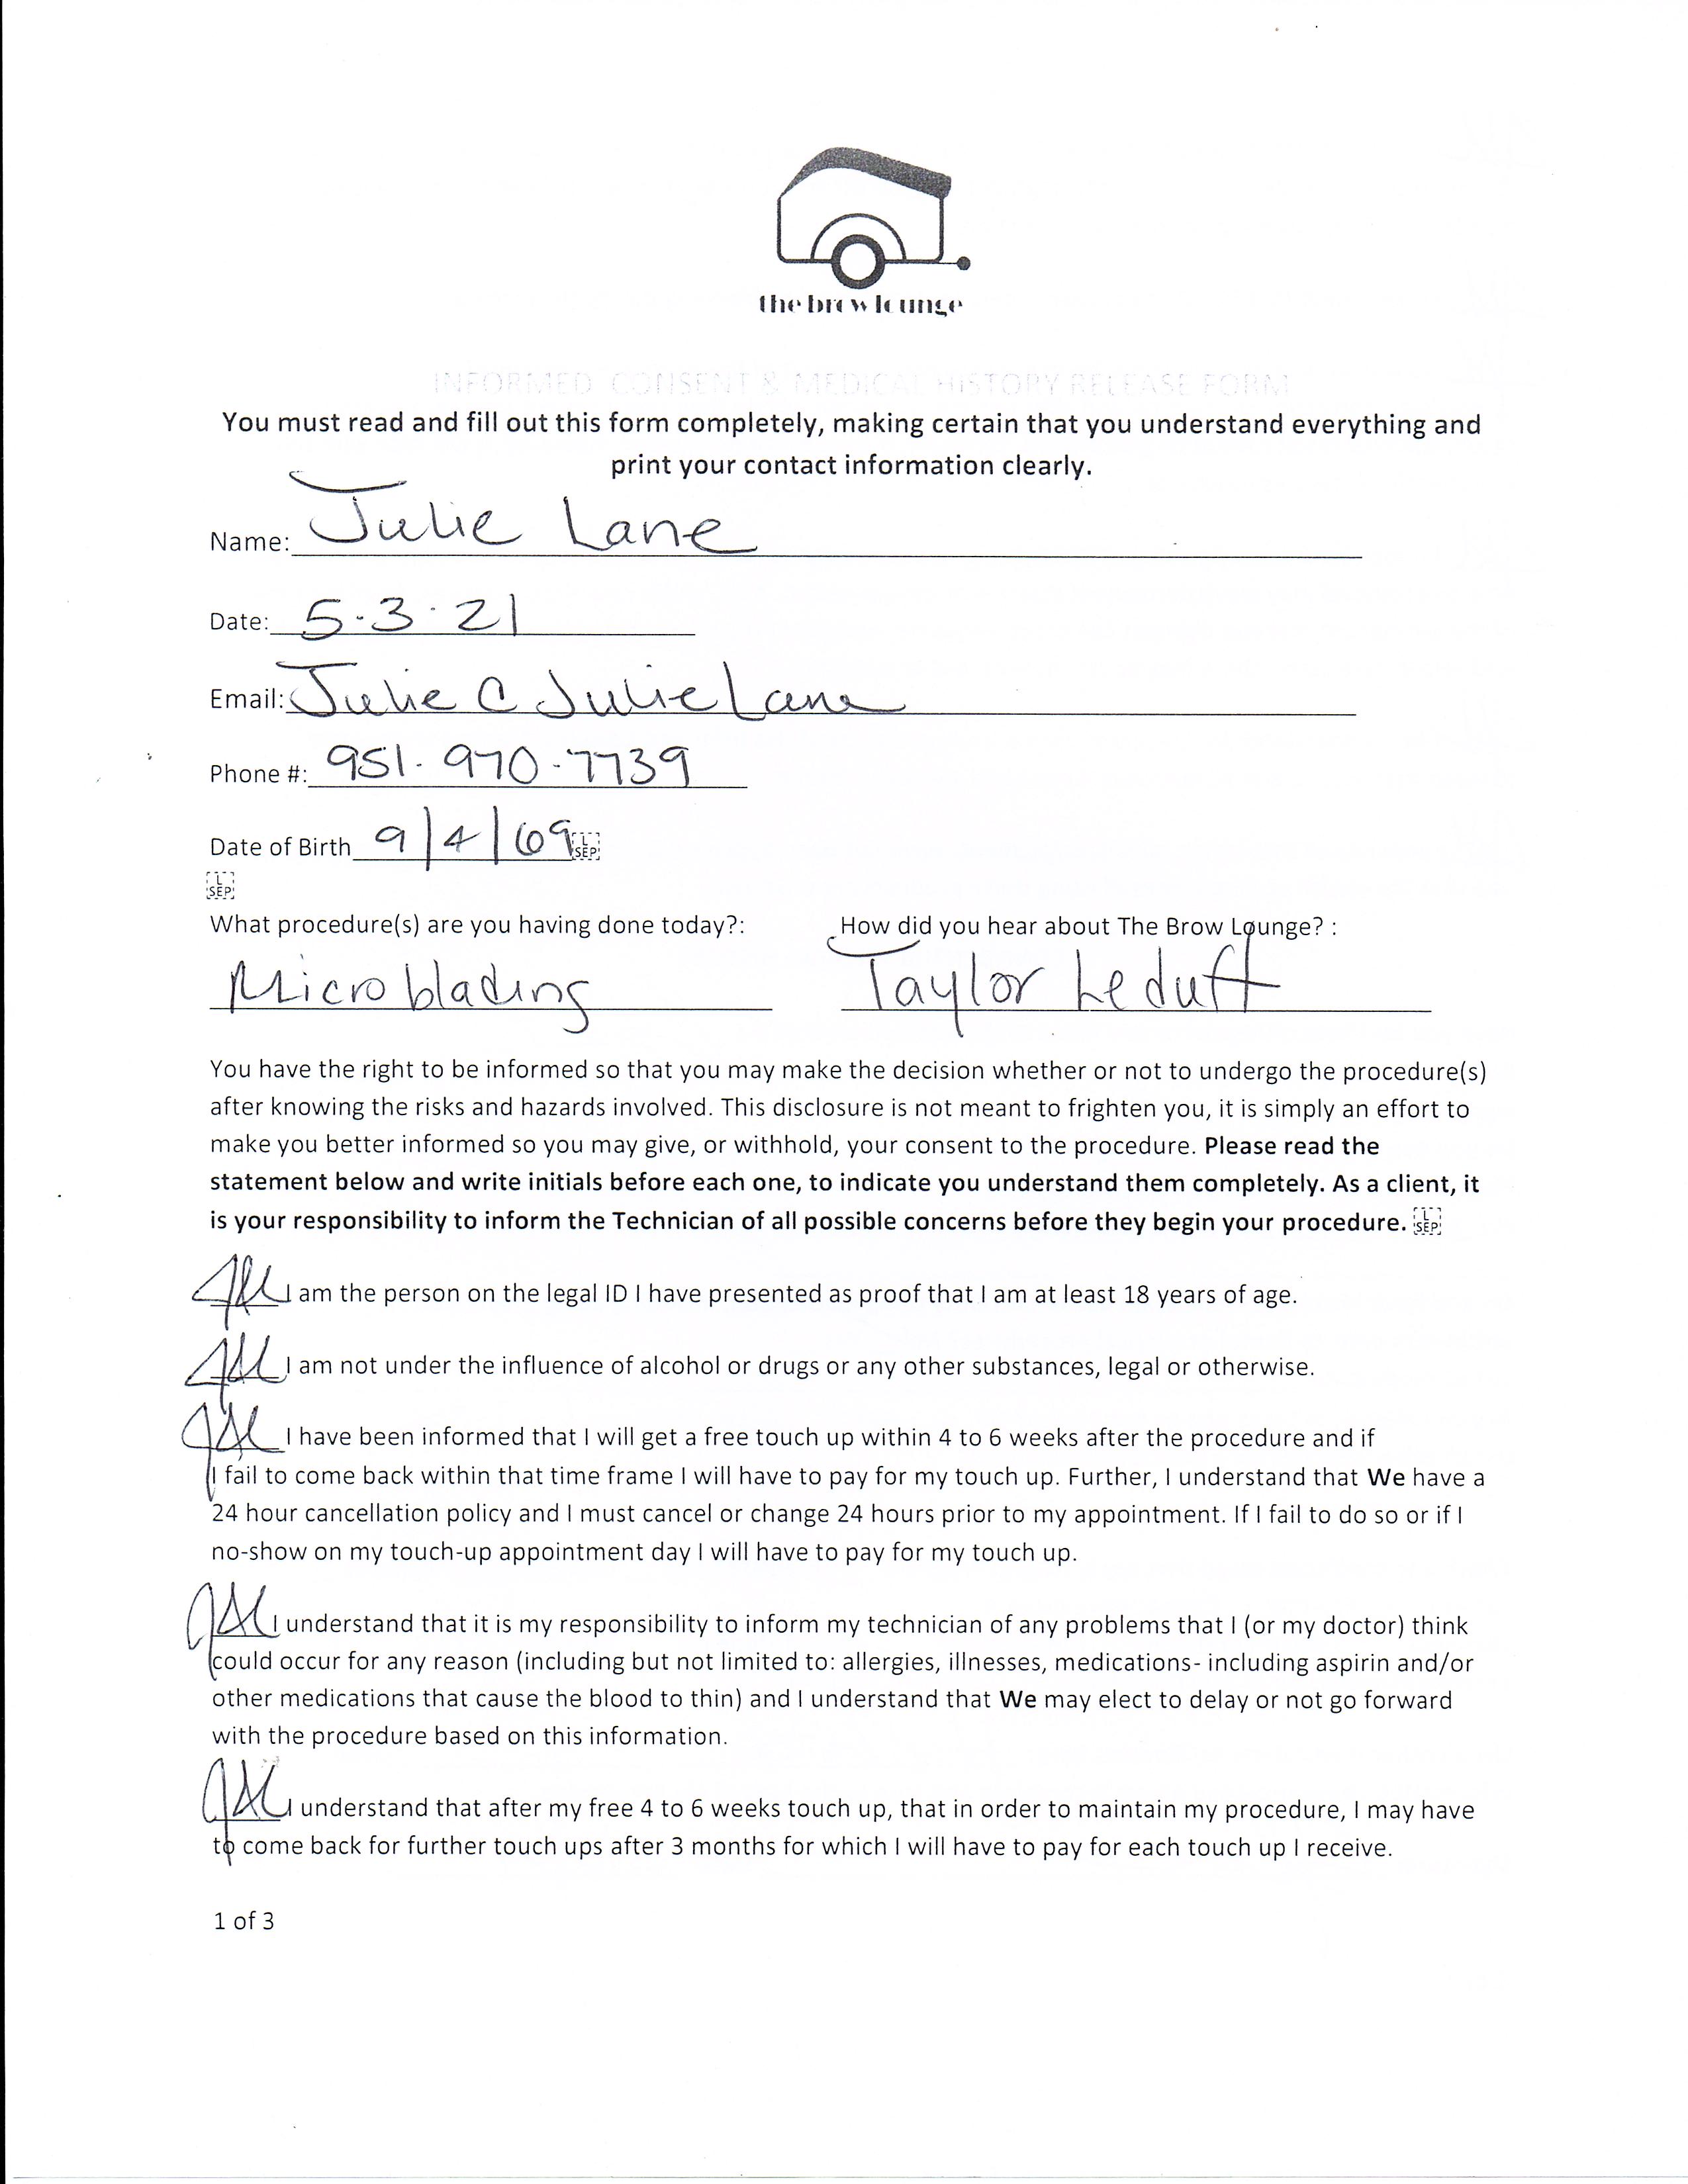 the brow lounge
INFORMED CONSENT & MEDICAL HISTORY RELEASE FORM
You must read and fill out this form completely, making certain that you understand everything and
print your contact information clearly.
Name: Julie Lane
Date: 5.3.21
Email: Julie @ JulieLane
Phone #: 951-970-7739
Date of Birth 9/4/69 L SEP
L SEP
What procedure(s) are you having done today?: How did you hear about The Brow Lounge? :
Microblading Taylor Leduff
You have the right to be informed so that you may make the decision whether or not to undergo the procedure(s)
after knowing the risks and hazards involved. This disclosure is not meant to frighten you, it is simply an effort to
make you better informed so you may give, or withhold, your consent to the procedure. Please read the
statement below and write initials before each one, to indicate you understand them completely. As a client, it
is your responsibility to inform the Technician of all possible concerns before they begin your procedure. L SEP
I am the person on the legal ID I have presented as proof that I am at least 18 years of age.
I am not under the influence of alcohol or drugs or any other substances, legal or otherwise.
I have been informed that I will get a free touch up within 4 to 6 weeks after the procedure and if
I fail to come back within that time frame I will have to pay for my touch up. Further, I understand that We have a
24 hour cancellation policy and I must cancel or change 24 hours prior to my appointment. If I fail to do so or if I
no-show on my touch-up appointment day I will have to pay for my touch up.
I understand that it is my responsibility to inform my technician of any problems that I (or my doctor) think
could occur for any reason (including but not limited to: allergies, illnesses, medications- including aspirin and/or
other medications that cause the blood to thin) and I understand that We may elect to delay or not go forward
with the procedure based on this information.
I understand that after my free 4 to 6 weeks touch up, that in order to maintain my procedure, I may have
to come back for further touch ups after 3 months for which I will have to pay for each touch up I receive.
1 of 3